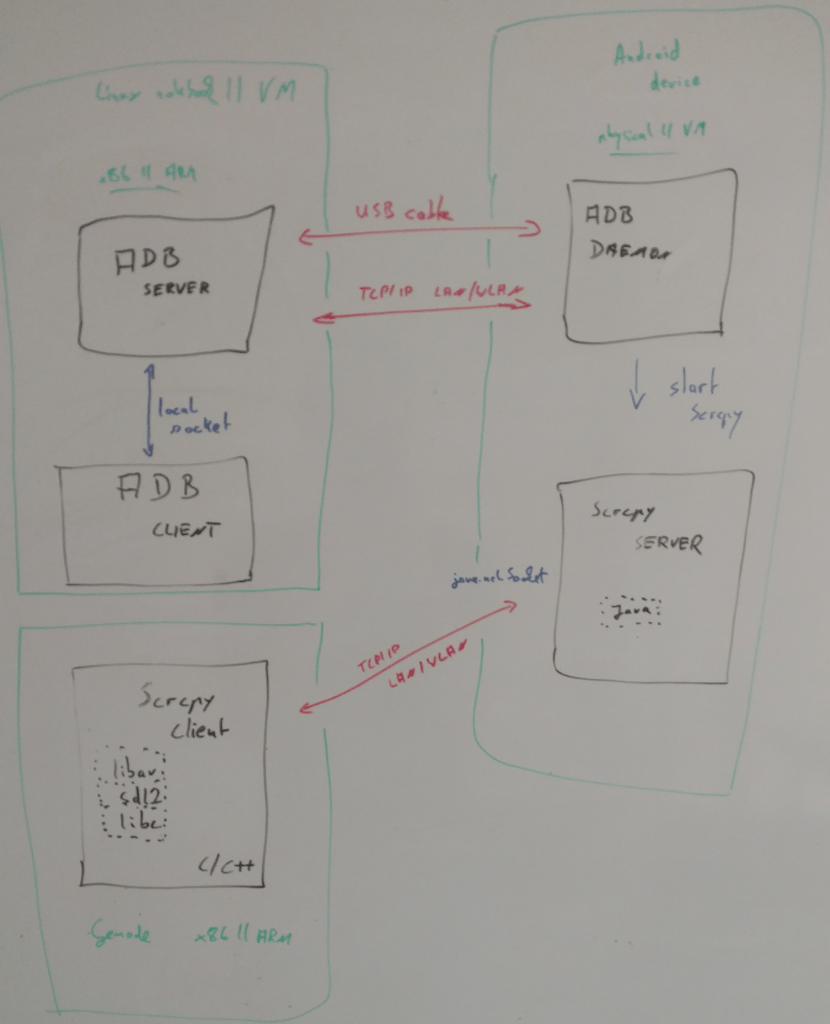 Linux notebook || VM
x86 || ARM
ADB
SERVER
local
socket
ADB
CLIENT
USB cable
TCP/IP LAN/VLAN
Android
device
physical || VM
ADB
DAEMON
start
Scrcpy
Scrcpy
SERVER
java
java.net.Socket
TCP/IP
LAN/VLAN
Scrcpy
Client
libav
sdl2
libc
C/C++
Genode x86 || ARM